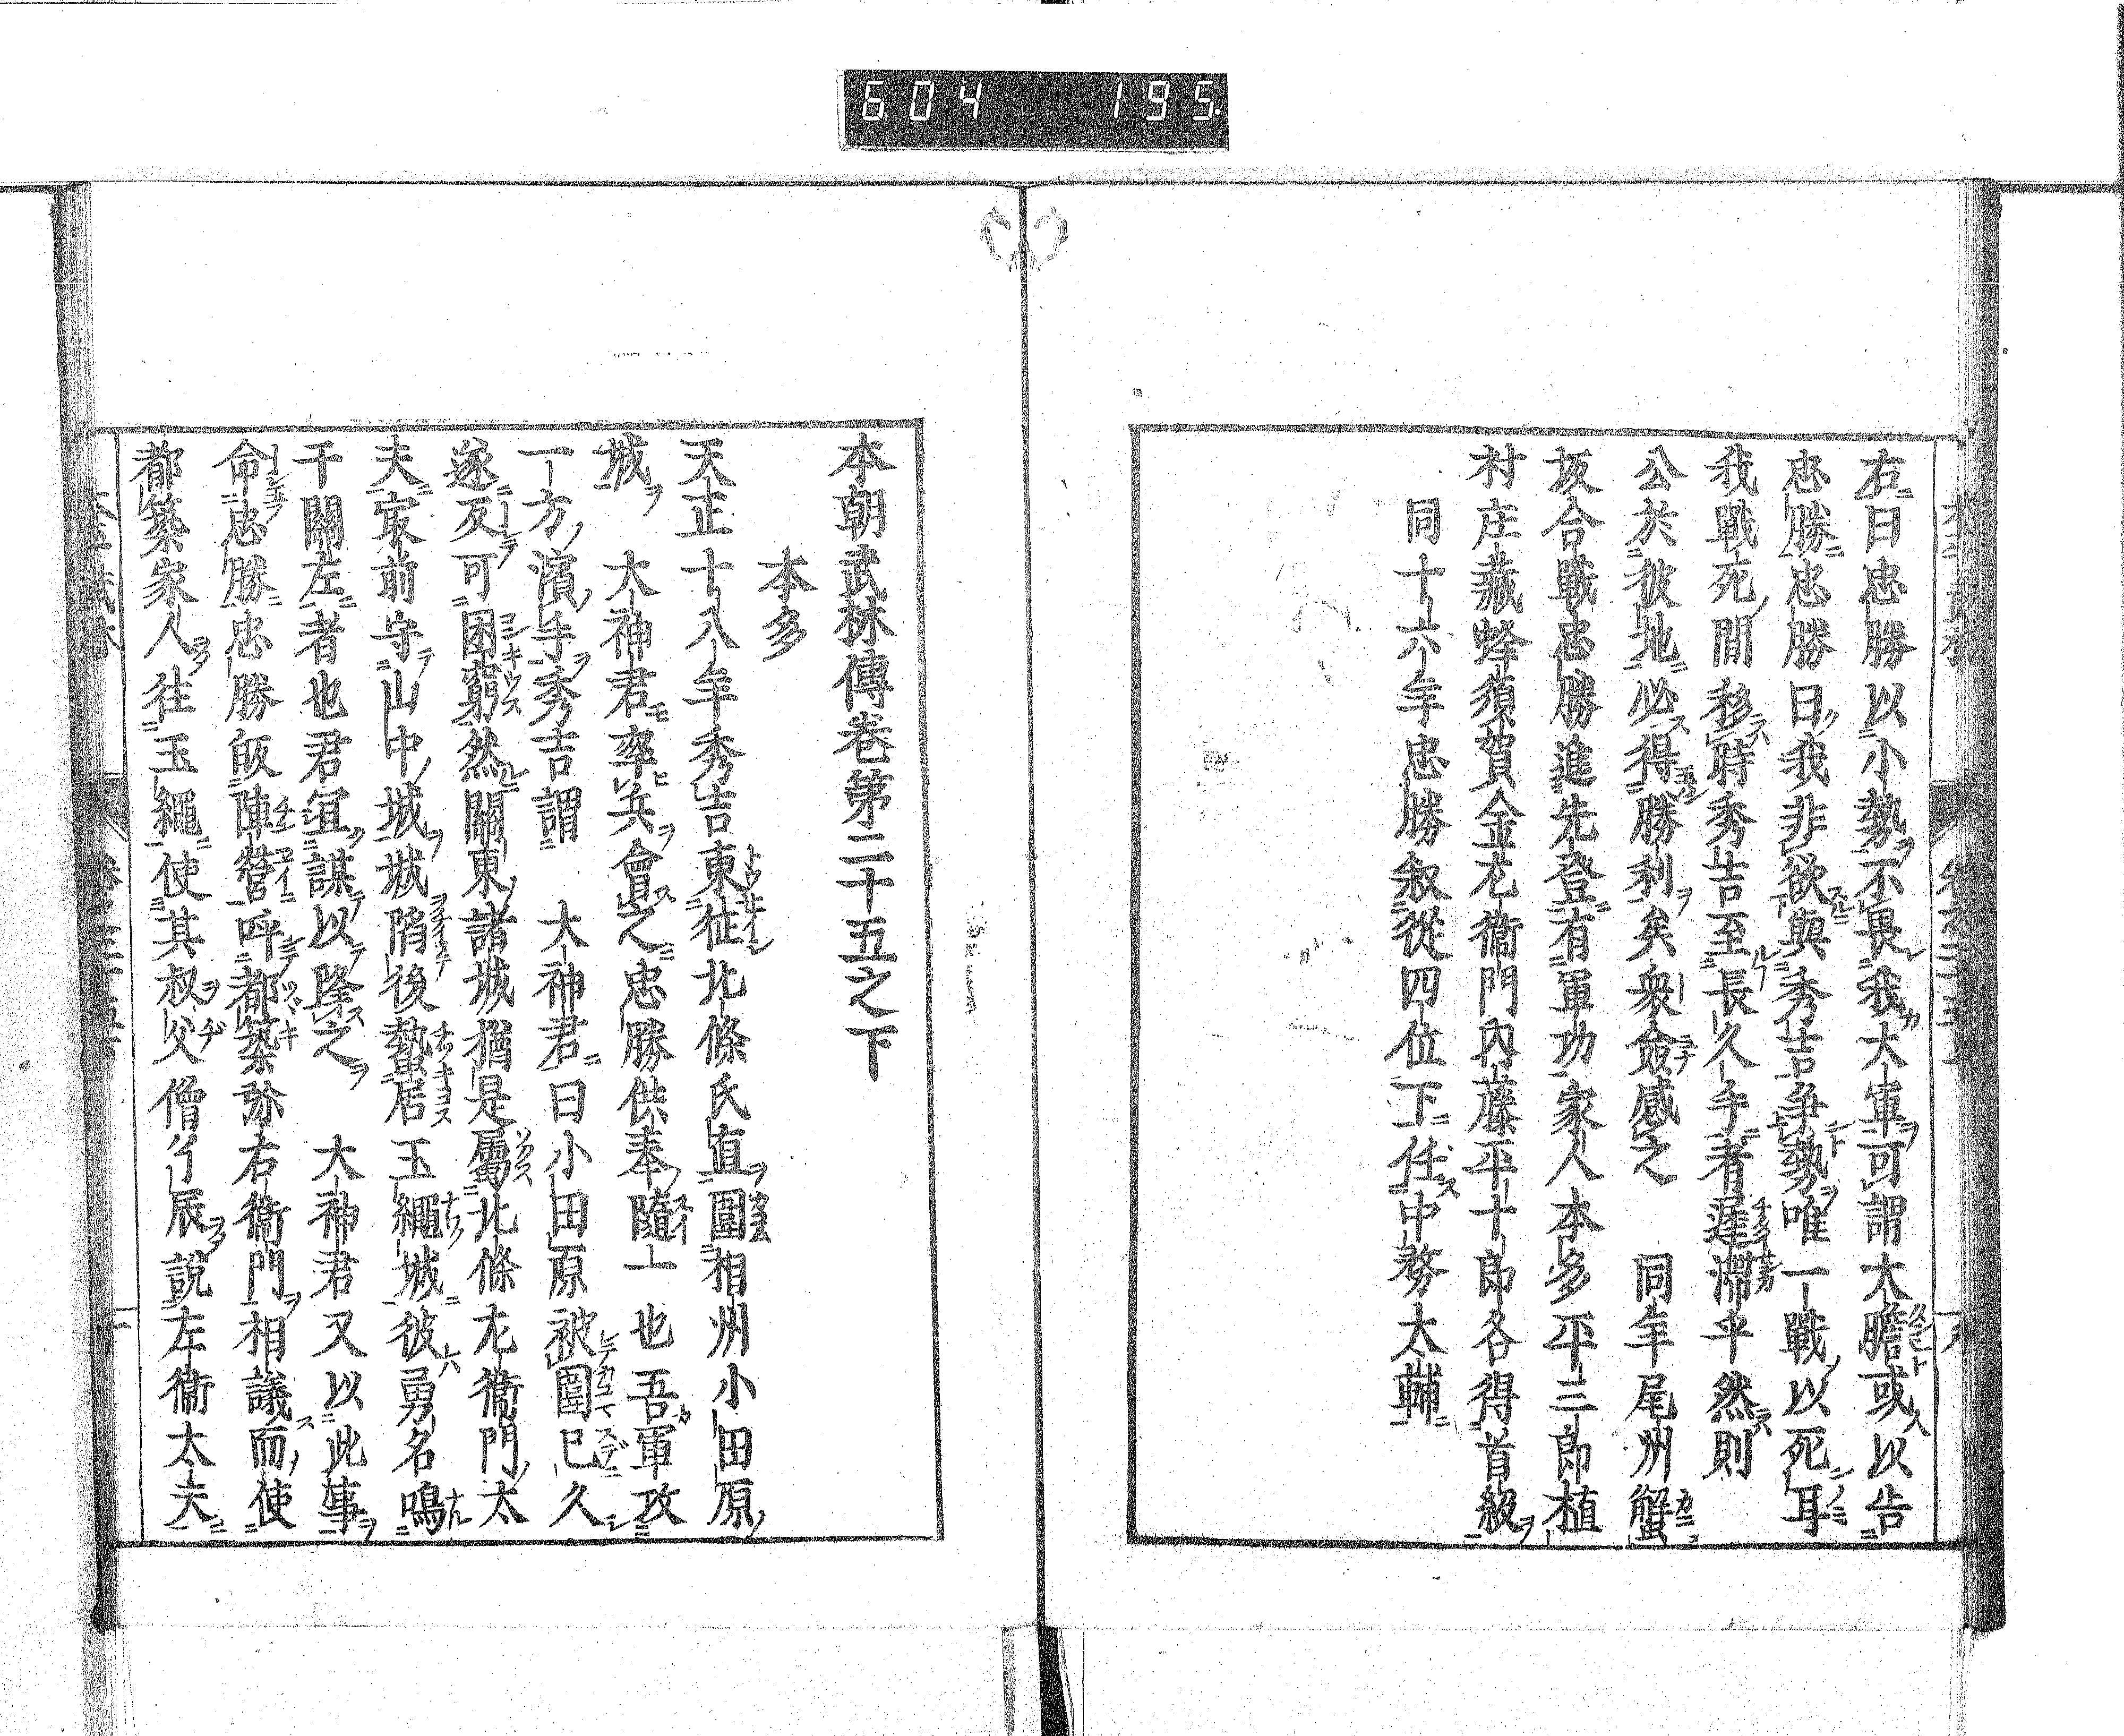 604 195.
右曰忠勝以小勢不畏我大軍可謂大膽或以告
忠勝忠勝曰我非欲與秀吉爭勢唯一戰以死耳
我戰死間移時秀吉至長久手者遲滯乎然則
公於彼地必得勝利矣衆僉感之　同年尾州蟹
坂合戰忠勝進先登有軍功家人本多平三郎植
村庄藏蜂須賀金尤衞門內藤平十郎各得首級
同十六年忠勝叙從四位下任中務太輔
本朝武林傳卷第二十五之下
本多
天正十八年秀吉東征北條氏直圍相州小田原
城　大神君率兵會之忠勝供奉隨一也吾軍攻
一方濱手秀吉謂　大神君曰小田原被圍已久
遂及可困窮然關東諸城猶是屬北條尤衞門太
夫㝡前守山中城城陷後蟄居玉繩城彼勇名鳴
于關左者也君宜謀以降之　大神君又以此事
命忠勝忠勝皈陣營呼都築弥右衞門相議而使
都築家人往玉繩使其叔父僧行辰說左衞太夫